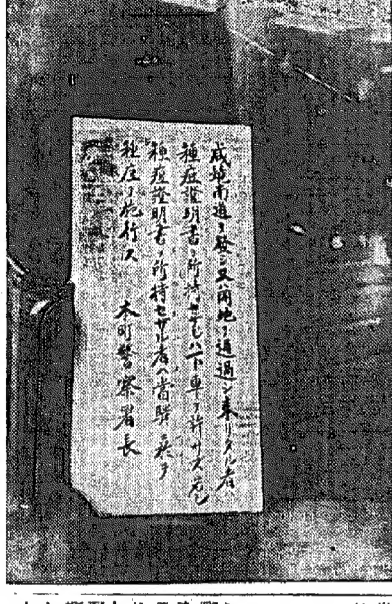 咸鏡南道ヲ發シ又ハ同地ヲ通過シ来リタル者ハ
種痘證明書ヲ所持セザレハ下車ヲ許サス尤モ
種痘證明書ヲ所持セサル者ハ當驛ニ於テ
種痘ヲ施行ス 本町警察署長